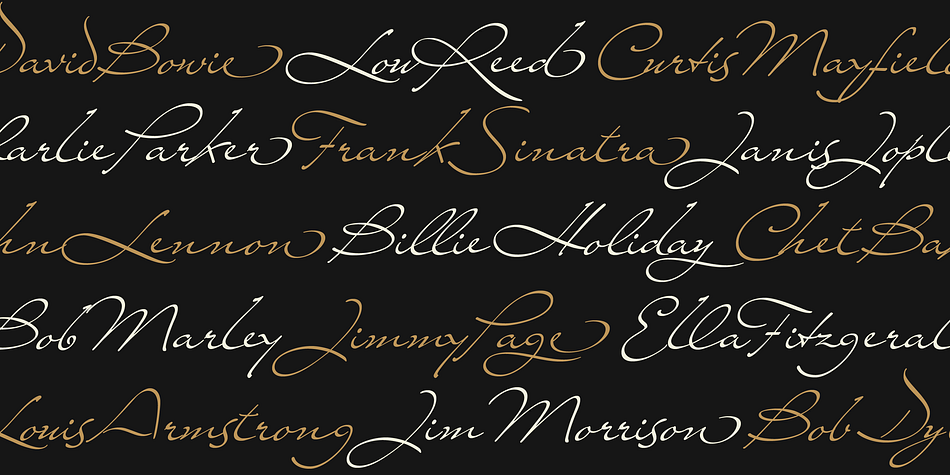 David Bowie Lou Reed Curtis Mayfield
harlie Parker Frank Sinatra Janis Jopli
hn Lennon Billie Holiday Chet Bak
Bob Marley Jimmy Page Ella Fitzgeral
Louis Armstrong Jim Morrison Bob Dyl